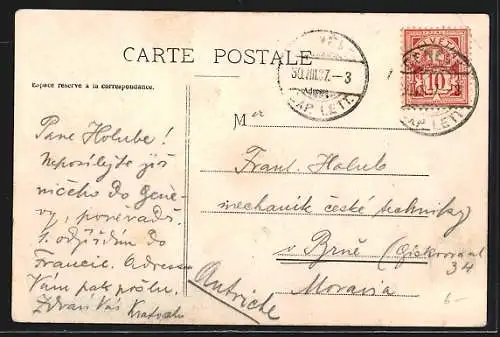 CARTE POSTALE
Espace réservé à la correspondance.
30.VIII.07.-3
EXP. LETT.
HELVETIA
10
EXP. LETT.
M er
Pane Holube!
Neposílejte již
ničeho do Genè-
vy, poněvadž
1. odjíždím do
Francie. Adresu
Vám pak pošlu.
Zdraví Vás
Frant. Holub
mechanik české techniky
v Brně
34
Moravia
Autriche
6-